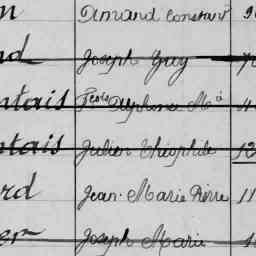 n Armand Constant
d Joseph Guy
ntais Alphonse M
ntais Julien Théophile 12
rd Jean-Marie Pierre 11
er Joseph Marie